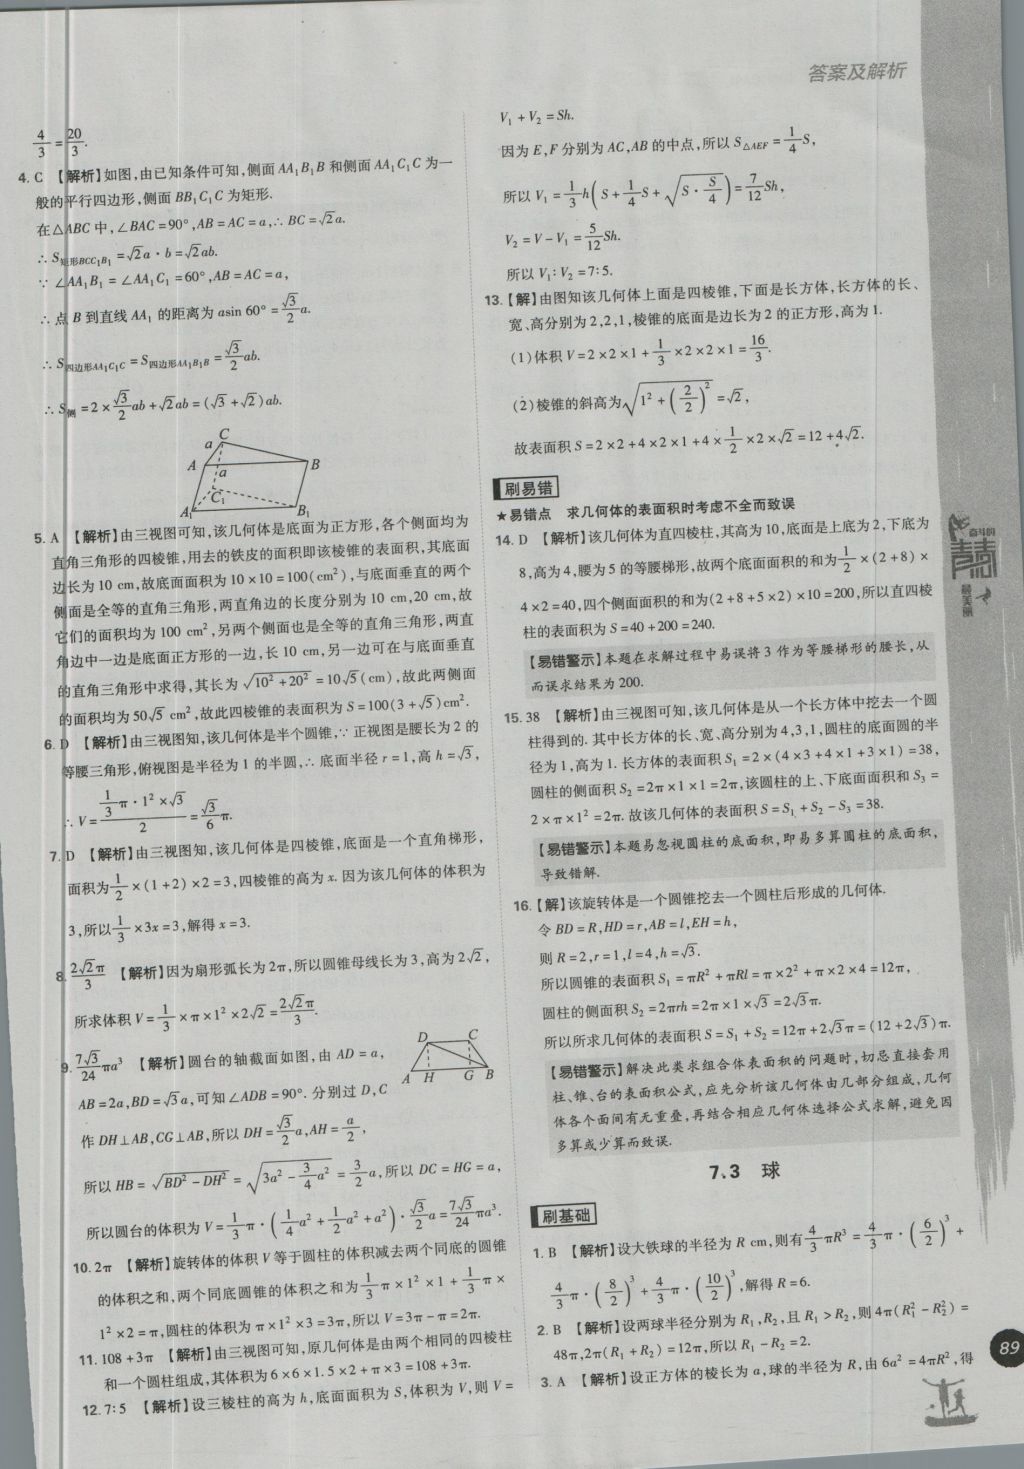 答案及解析
4/3=20/3.
4. C 【解析】如图,由已知条件可知,侧面AA₁B₁B和侧面AA₁C₁C为一
般的平行四边形,侧面BB₁C₁C为矩形.
在△ABC中,∠BAC=90°,AB=AC=a,∴BC=√2a.
∴S矩形BCC₁B₁=√2a·b=√2ab.
∵∠AA₁B₁=∠AA₁C₁=60°,AB=AC=a,
∴点B到直线AA₁的距离为asin 60°=√3/2a.
∴S四边形AA₁C₁C=S四边形AA₁B₁B=√3/2ab.
∴S侧=2×√3/2ab+√2ab=(√3+√2)ab.
C
a
A
a
B
C₁
A₁
B₁
5. A 【解析】由三视图可知,该几何体是底面为正方形,各个侧面均为
直角三角形的四棱锥,用去的铁皮的面积即该棱锥的表面积,其底面
边长为10 cm,故底面面积为10×10=100(cm²),与底面垂直的两个
侧面是全等的直角三角形,两直角边的长度分别为10 cm,20 cm,故
它们的面积均为100 cm²,另两个侧面也是全等的直角三角形,两直
角边中一边是底面正方形的一边,长10 cm,另一边可在与底面垂直
的直角三角形中求得,其长为√(10²+20²)=10√5(cm),故此两侧面
的面积均为50√5 cm²,故此四棱锥的表面积为S=100(3+√5)cm².
6. D 【解析】由三视图知,该几何体是半个圆锥,∵正视图是腰长为2的
等腰三角形,俯视图是半径为1的半圆,∴底面半径r=1,高h=√3,
∴V=(1/3π·1²×√3)/2=√3/6π.
7. D 【解析】由三视图知,该几何体是四棱锥,底面是一个直角梯形,
面积为1/2×(1+2)×2=3,四棱锥的高为x.因为该几何体的体积为
3,所以1/3×3x=3,解得x=3.
8. 2√2π/3 【解析】因为扇形弧长为2π,所以圆锥母线长为3,高为2√2,
所求体积V=1/3×π×1²×2√2=2√2π/3.
9. 7√3/24πa³ 【解析】圆台的轴截面如图,由AD=a,
AB=2a,BD=√3a,可知∠ADB=90°.分别过D,C
作DH⊥AB,CG⊥AB,所以DH=√3/2a,AH=a/2,
D C
A H G B
所以HB=√(BD²-DH²)=√(3a²-3/4a²)=3/2a,所以DC=HG=a,
所以圆台的体积为V=1/3π·(1/4a²+1/2a²+a²)·√3/2a=7√3/24πa³.
10. 2π 【解析】旋转体的体积V等于圆柱的体积减去两个同底的圆锥
的体积之和,两个同底圆锥的体积之和为1/3π×1²×1+1/3π×
1²×2=π,圆柱的体积为π×1²×3=3π,所以V=3π-π=2π.
11. 108+3π 【解析】由三视图可知,原几何体是由两个相同的四棱柱
和一个圆柱组成,其体积为6×6×1.5×2+π×3=108+3π.
12. 7∶5 【解析】设三棱柱的高为h,底面面积为S,体积为V,则V=
V₁+V₂=Sh.
因为E,F分别为AC,AB的中点,所以S△AEF=1/4S,
所以V₁=1/3h(S+1/4S+√(S·S/4))=7/12Sh,
V₂=V-V₁=5/12Sh.
所以V₁∶V₂=7∶5.
13. 【解】由图知该几何体上面是四棱锥,下面是长方体,长方体的长、
宽、高分别为2,2,1,棱锥的底面是边长为2的正方形,高为1.
(1)体积V=2×2×1+1/3×2×2×1=16/3.
(2)棱锥的斜高为√(1²+(2/2)²)=√2,
故表面积S=2×2+4×2×1+4×1/2×2×√2=12+4√2.
刷易错
★易错点 求几何体的表面积时考虑不全而致误
14. D 【解析】该几何体为直四棱柱,其高为10,底面是上底为2,下底为
8,高为4,腰为5的等腰梯形,故两个底面面积的和为1/2×(2+8)×
4×2=40,四个侧面面积的和为(2+8+5×2)×10=200,所以直四棱
柱的表面积为S=40+200=240.
【易错警示】本题在求解过程中易误将3作为等腰梯形的腰长,从
而误求结果为200.
15. 38 【解析】由三视图可知,该几何体是从一个长方体中挖去一个圆
柱得到的.其中长方体的长、宽、高分别为4,3,1,圆柱的底面圆的半
径为1,高为1.长方体的表面积S₁=2×(4×3+4×1+3×1)=38,
圆柱的侧面积S₂=2π×1×1=2π,该圆柱的上、下底面面积和S₃=
2×π×1²=2π.故该几何体的表面积S=S₁+S₂-S₃=38.
【易错警示】本题易忽视圆柱的底面积,即易多算圆柱的底面积,
导致错解.
16. 【解】该旋转体是一个圆锥挖去一个圆柱后形成的几何体.
令BD=R,HD=r,AB=l,EH=h,
则R=2,r=1,l=4,h=√3.
所以圆锥的表面积S₁=πR²+πRl=π×2²+π×2×4=12π,
圆柱的侧面积S₂=2πrh=2π×1×√3=2√3π.
所以所求几何体的表面积S=S₁+S₂=12π+2√3π=(12+2√3)π.
【易错警示】解决此类求组合体表面积的问题时,切忌直接套用
柱、锥、台的表面积公式,应先分析该几何体由几部分组成,几何
体各个面间有无重叠,再结合相应几何体选择公式求解,避免因
多算或少算而致误.
7.3 球
刷基础
1. B 【解析】设大铁球的半径为R cm,则有4/3πR³=4/3π·(6/2)³+
4/3π·(8/2)³+4/3π·(10/2)³,解得R=6.
2. B 【解析】设两球半径分别为R₁,R₂,且R₁>R₂,则4π(R₁²-R₂²)=
48π,2π(R₁+R₂)=12π,所以R₁-R₂=2.
3. A 【解析】设正方体的棱长为a,球的半径为R,由6a²=4πR²,得
奋斗的
青春
最美丽
89